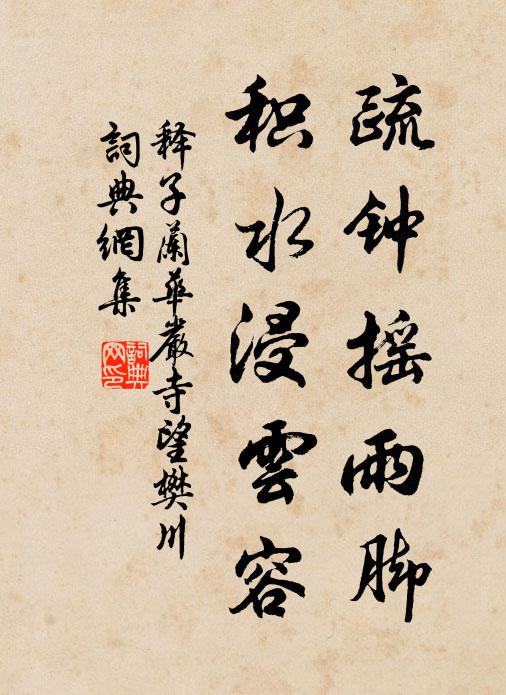 疏钟摇雨脚
积水浸雲容
释子蘭華嚴寺望樊川
詞典網集
詞典网印